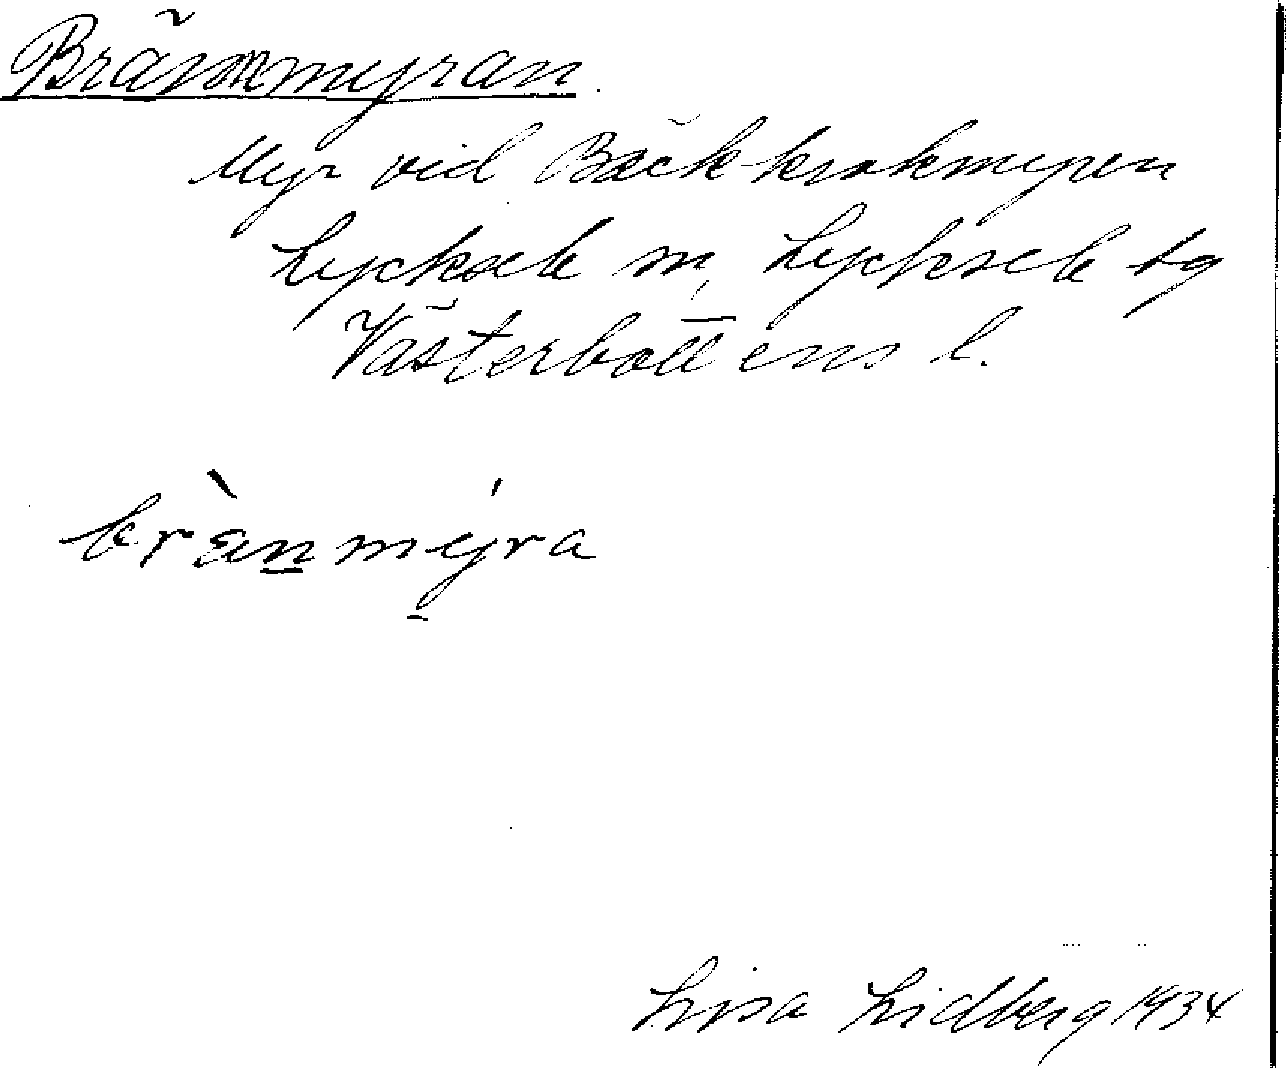 Brännmyran.
Myr vid Bäckkrokmyren
Lycksele m, Lycksele tg
Västerbottens l.
brὰnmýra
Lisa Lidberg 1934